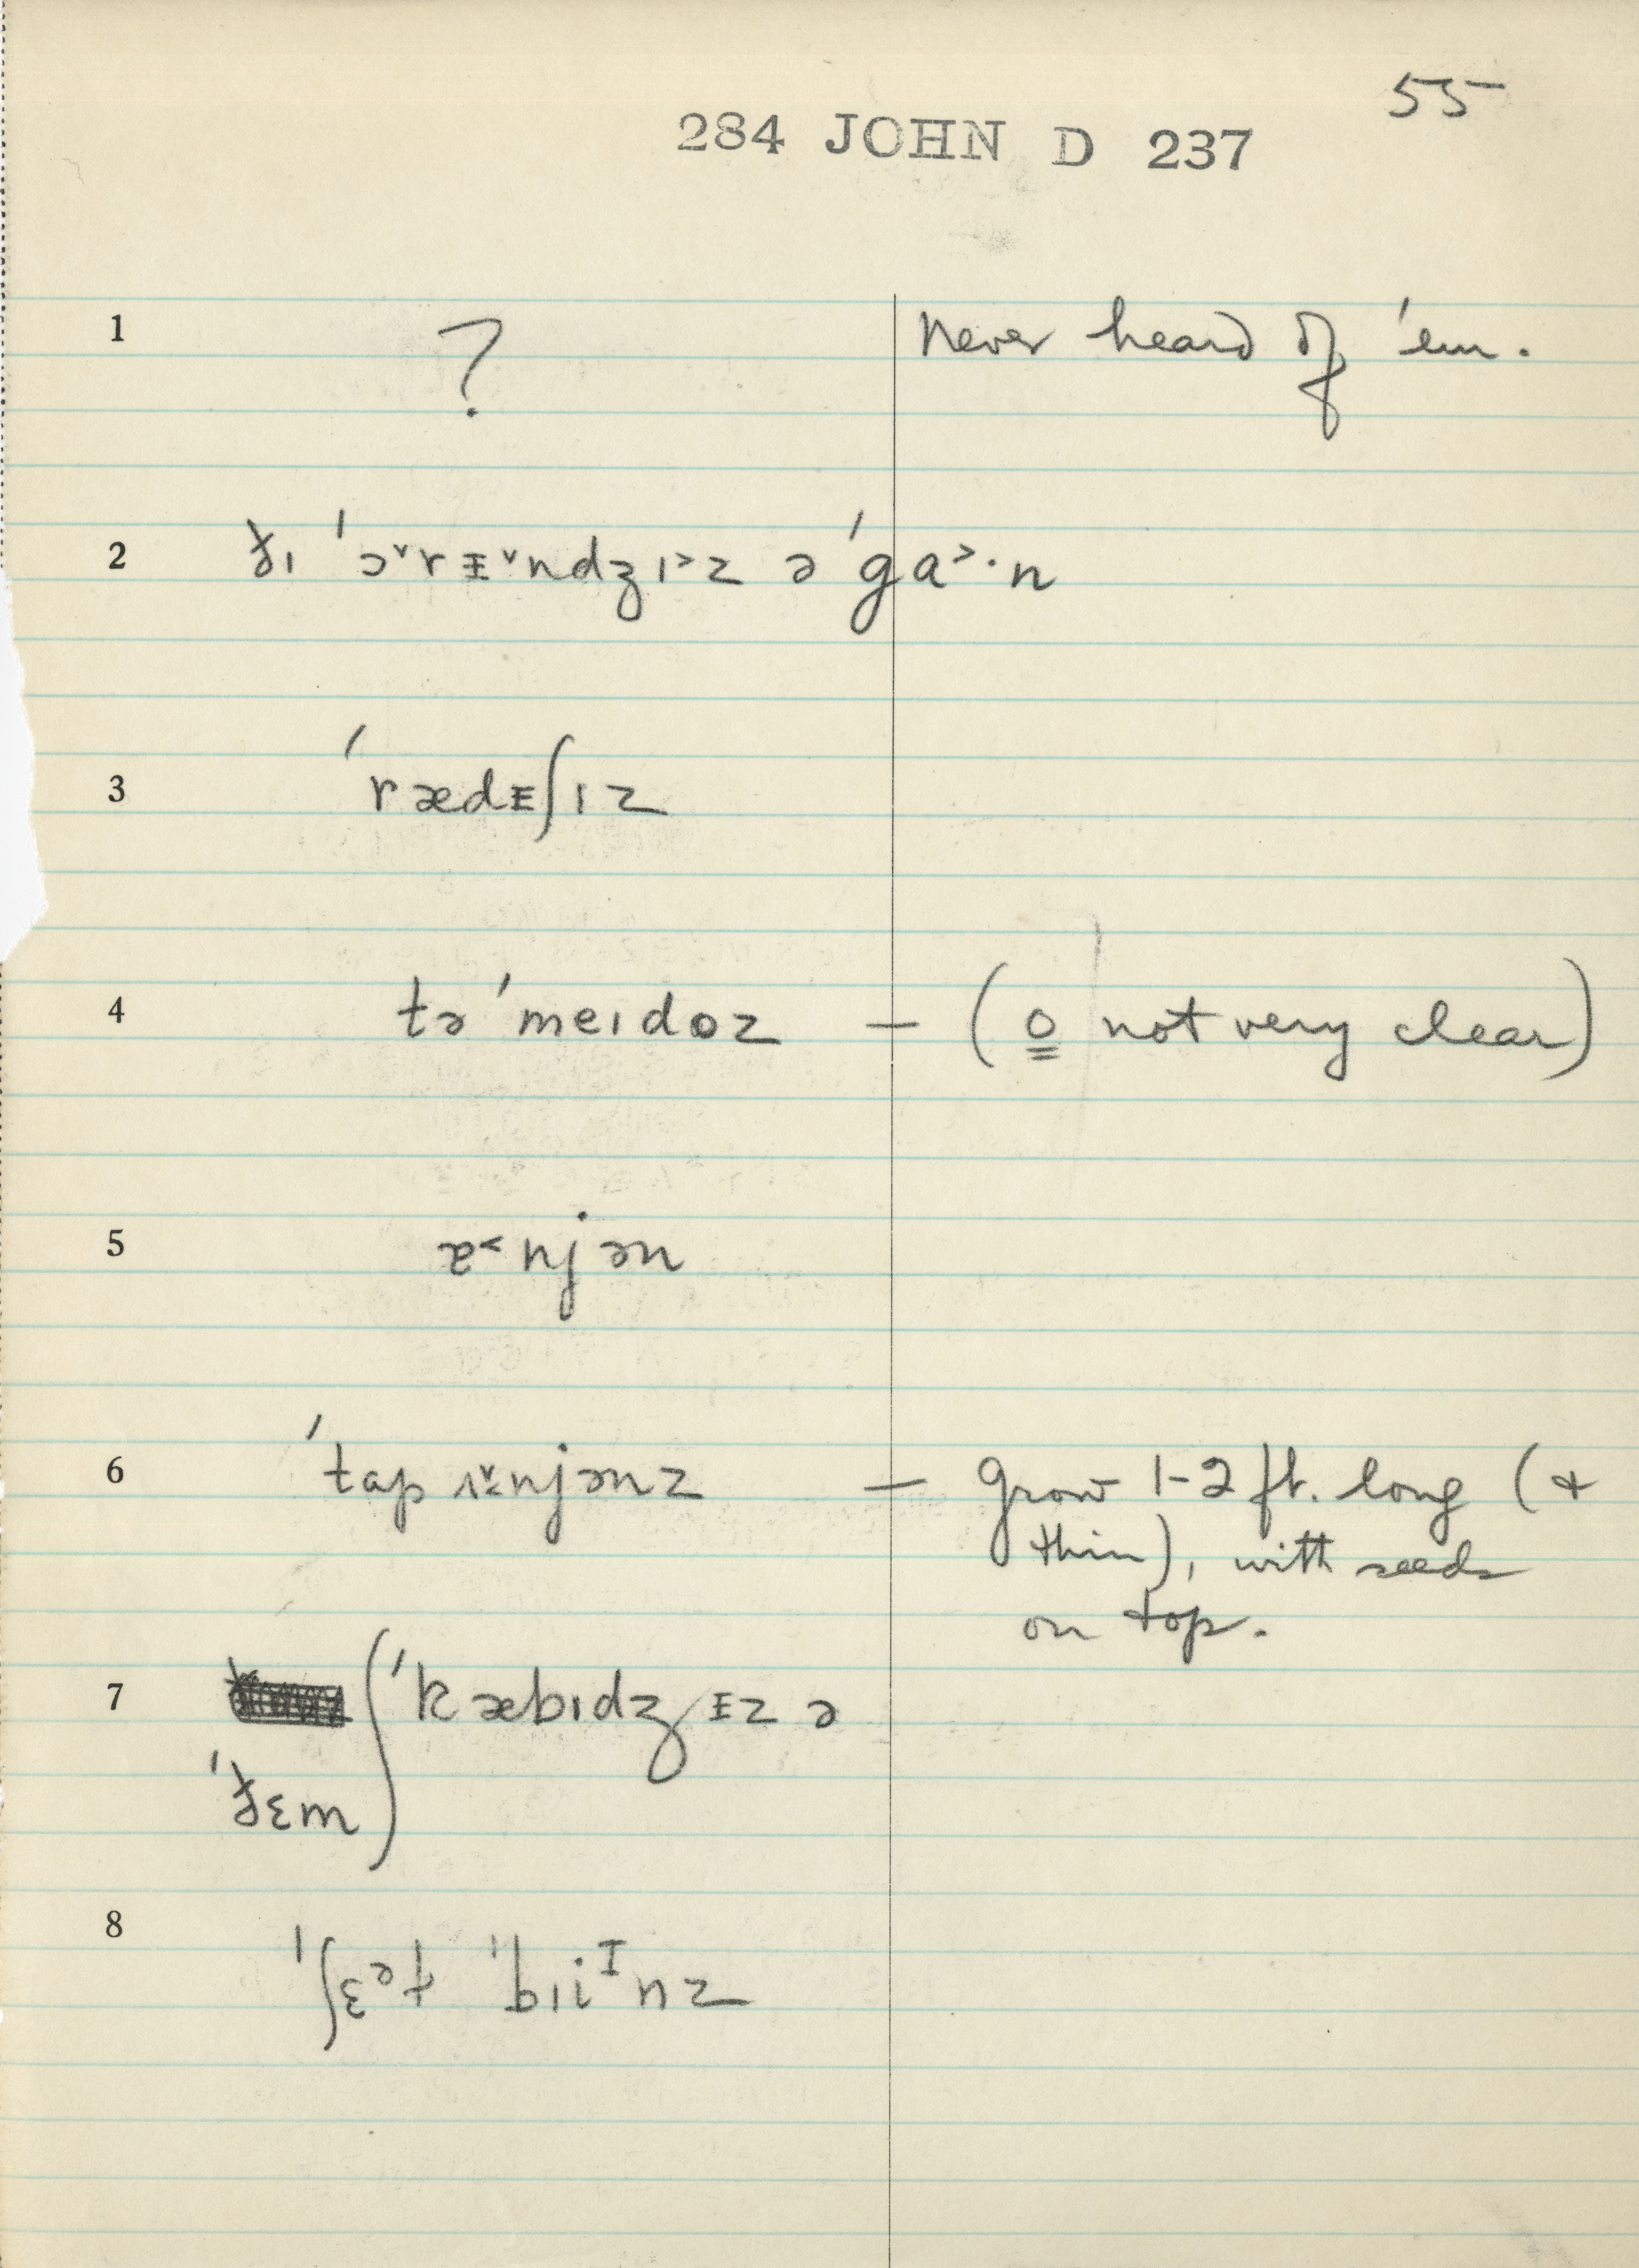 55
284 JOHN D 237
1 ? Never heard of 'em.
2 ɟɪ 'ɔ˅rᵻ˅ndʒɪ˃z ə 'ga˃·n
3 'rædᵻʃɪz
4 tə'meɪdoz — (o not very clear)
5 njən
6 'tap njənz — grow 1-2 ft. long (+
thin), with seeds
on top.
7 'kæbɪdʒᵻz ə
8